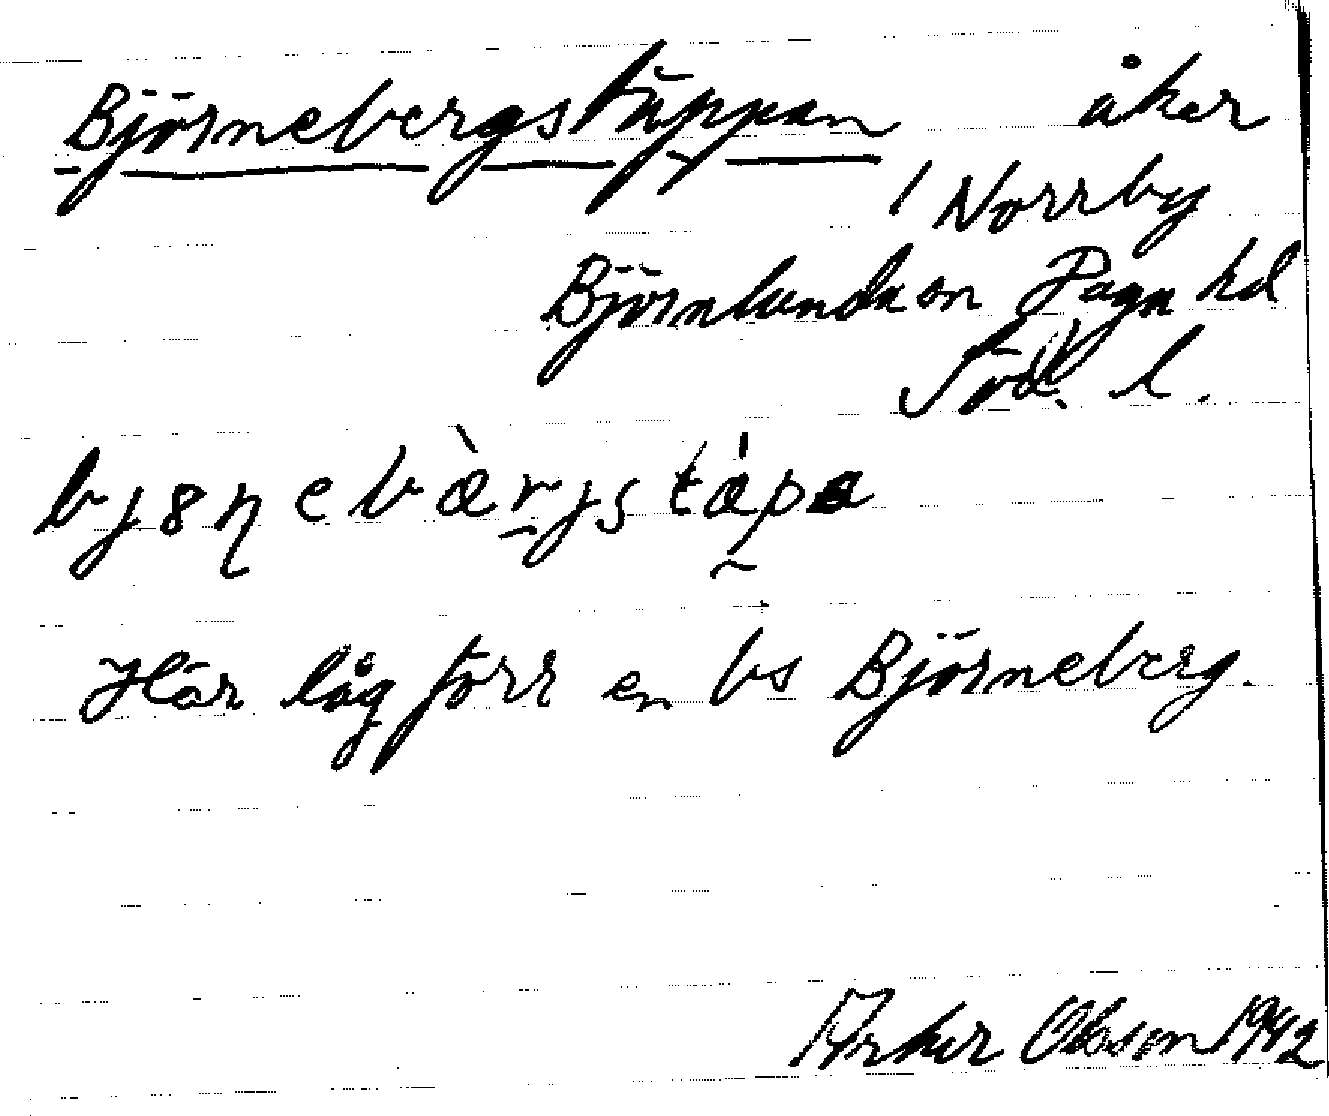 Björnebergstäppan åker
/ Norrby
Björnlunda sn Daga hd
Söd. l.
bjɵɳebæ̀rjs tæ̍pa
Här låg förr en bs Björneberg.
Olsson 1942